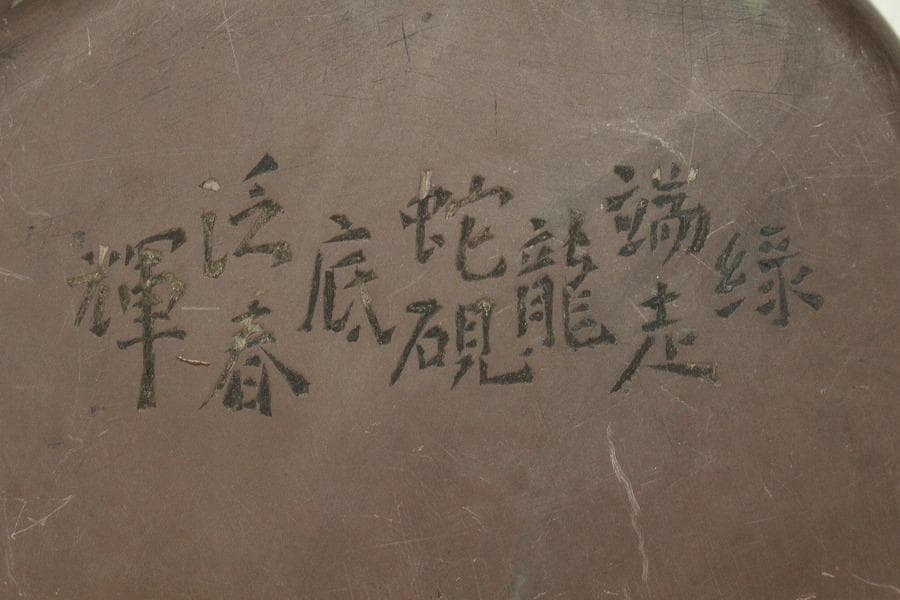 綠端走龍蛇硯底泛春輝